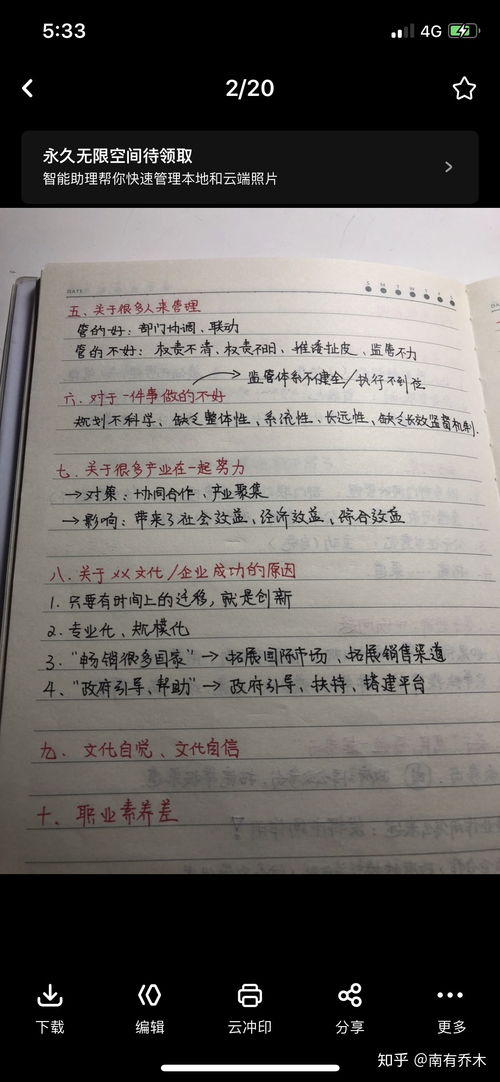 5:33
4G
2/20
永久无限空间待领取
智能助理帮你快速管理本地和云端照片
DATE
S M T W T F S
五、关于很多人来管理
管的好：部门协调、联动
管的不好：权责不清、权责不明、推诿扯皮、监管不力
监管体系不健全/执行不到位
六、对于一件事做的不好
规划不科学、缺乏整体性、系统性、长远性、缺乏长效监督机制.
七、关于很多产业在一起努力
→对策：协同合作、产业聚集
→影响：带来了社会效益，经济效益，综合效益
八、关于XX文化/企业成功的原因
1. 只要有时间上的迁移，就是创新
2. 专业化、规模化
3. “畅销很多国家”→ 拓展国际市场、拓展销售渠道
4. “政府引导、帮助”→ 政府引导、扶持、搭建平台
九、文化自觉、文化自信
十、职业素养差
下载
编辑
云冲印
分享
更多
知乎 @南有乔木